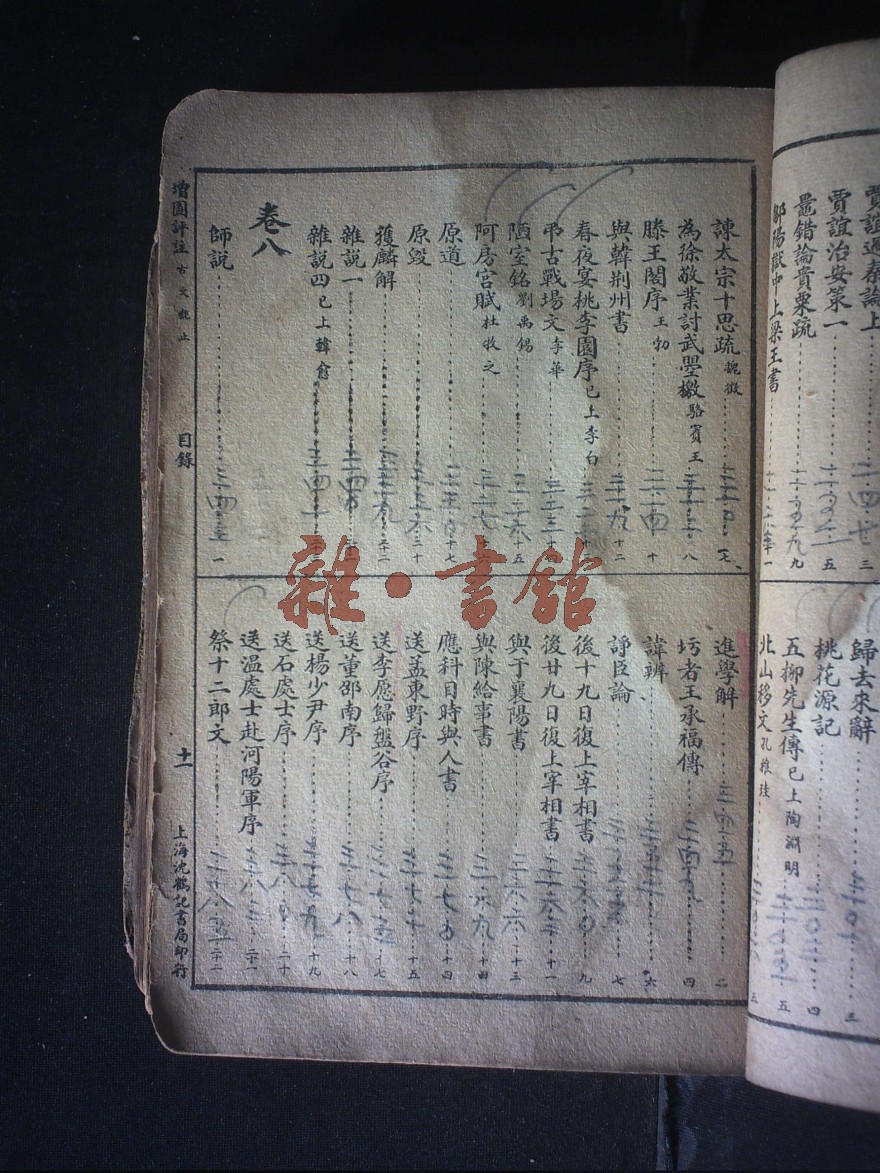 賈誼過秦論上 三
賈誼治安策一 五
鼂錯論貴粟疏 九
鄒陽獄中上梁王書
歸去來辭 三
桃花源記 四
五柳先生傳 已上陶淵明 五
北山移文 孔稚珪
諫太宗十思疏 魏徵 七
為徐敬業討武曌檄 駱賓王 八
滕王閣序 王勃 十
與韓荆州書 十二
春夜宴桃李園序 已上李白
弔古戰場文 李華
陋室銘 劉禹錫
阿房宮賦 杜牧之
原道 十七
原毀 二十
獲麟解 二十二
雜說一
雜說四 已上韓愈
卷八
師說 一
進學解 二
圬者王承福傳 四
諱辨 六
諍臣論 七
後十九日復上宰相書 九
後廿九日復上宰相書 十一
與于襄陽書 十三
與陳給事書 十四
應科目時與人書 十四
送孟東野序 十五
送李愿歸盤谷序 十七
送董邵南序 十八
送楊少尹序 十九
送石處士序 二十
送溫處士赴河陽軍序 二十一
祭十二郎文 二十二
增圖評註古文觀止 目錄 十一 上海沈鶴記書局印行
雜·書館